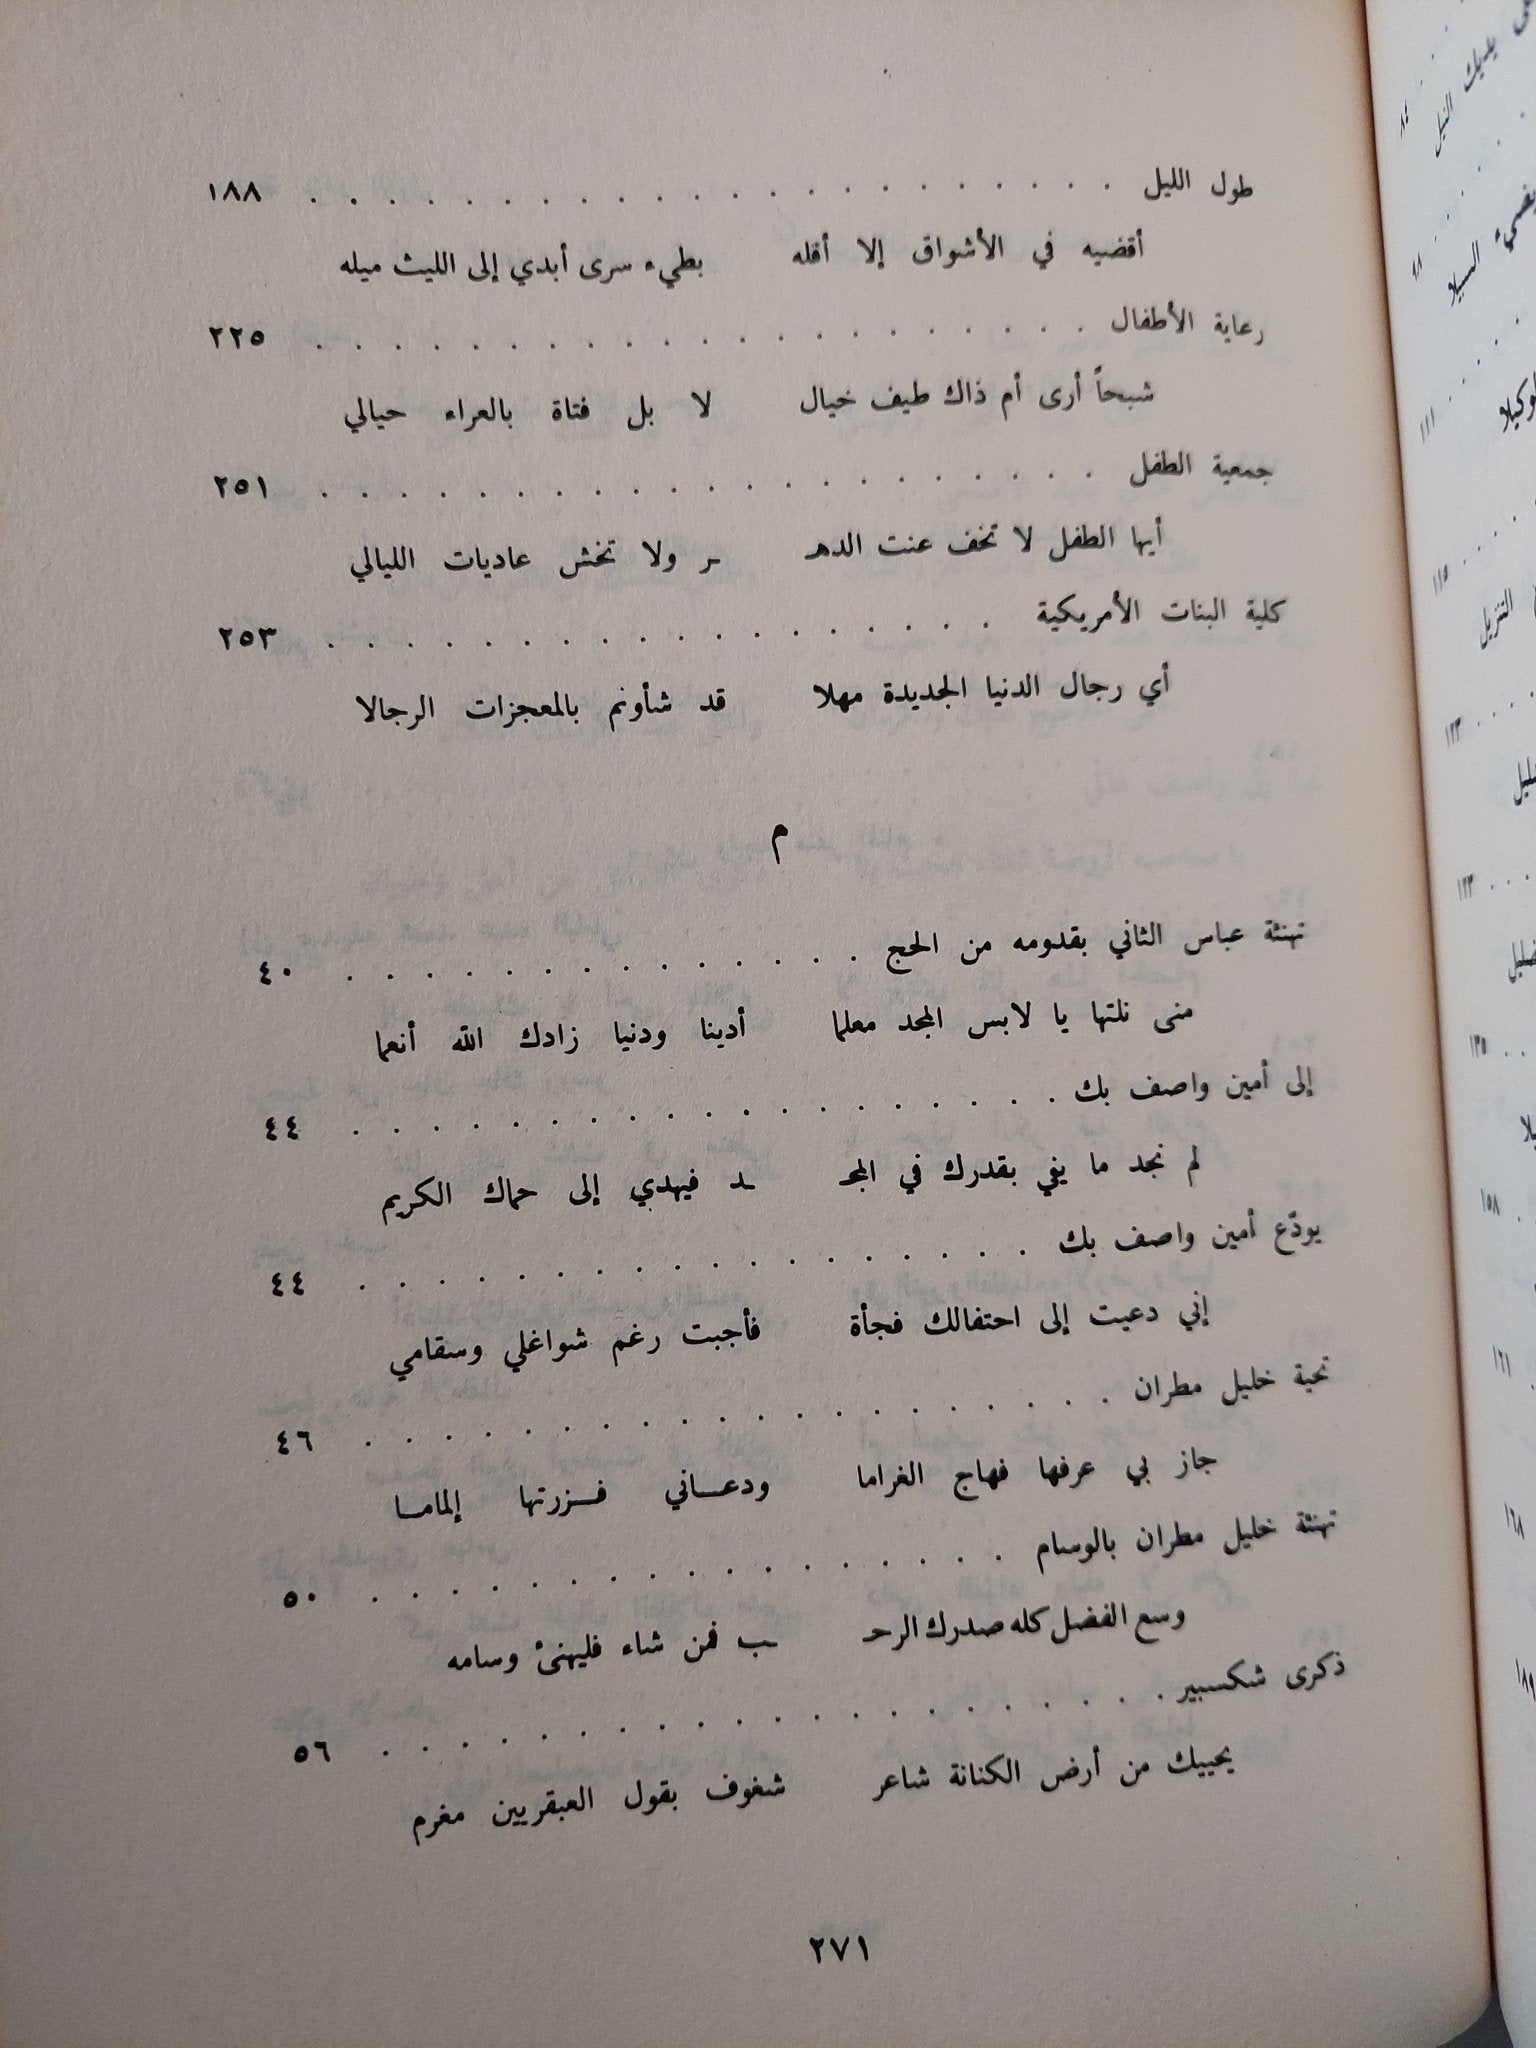 طول الليل . . . . . . . . . . . . . . . . . . . . . ١٨٨
أقضيه في الأشواق إلا أقله بطيء سرى أبدي إلى الليث ميله
رعاية الأطفال . . . . . . . . . . . . . . . . . . . . ٢٢٥
شبحاً أرى أم ذاك طيف خيال لا بل فتاة بالعراء حيالي
جمعية الطفل . . . . . . . . . . . . . . . . . . . . ٢٥١
أيها الطفل لا تخف عنت الدهـ ـر ولا تخش عاديات الليالي
كلية البنات الأمريكية . . . . . . . . . . . . . . . . . ٢٥٣
أي رجال الدنيا الجديدة مهلا قد شأونم بالمعجزات الرجالا
م
تهنئة عباس الثاني بقدومه من الحج . . . . . . . . . . . . . . ٤٠
منى نلتها يا لابس المجد معلما أدينا ودنيا زادك الله أنعما
إلى أمين واصف بك . . . . . . . . . . . . . . . . . . . ٤٤
لم نجد ما يفي بقدرك في المجـ ـد فيهدي إلى حماك الكريم
يودّع أمين واصف بك . . . . . . . . . . . . . . . . . . ٤٤
إني دعيت إلى احتفالك فجأة فأجبت رغم شواغلي وسقامي
تحية خليل مطران . . . . . . . . . . . . . . . . . . . . ٤٦
جاز بي عرفها فهاج الغراما ودعـــاني فـــزرتها إلمامـــا
تهنئة خليل مطران بالوسام . . . . . . . . . . . . . . . . . ٥٠
وسع الفضل كله صدرك الرحـ ـب فمن شاء فليهنئ وسامه
ذكرى شكسبير . . . . . . . . . . . . . . . . . . . . . ٥٦
يحييك من أرض الكنانة شاعر شغوف بقول العبقريين مغرم
٢٧١
يديك النيل
٨٤
السبيلا
١١١
١١٥
التنزيل
١٢٣
١٢٣
١٣٥
١٥٨
١٦١
١٦٨